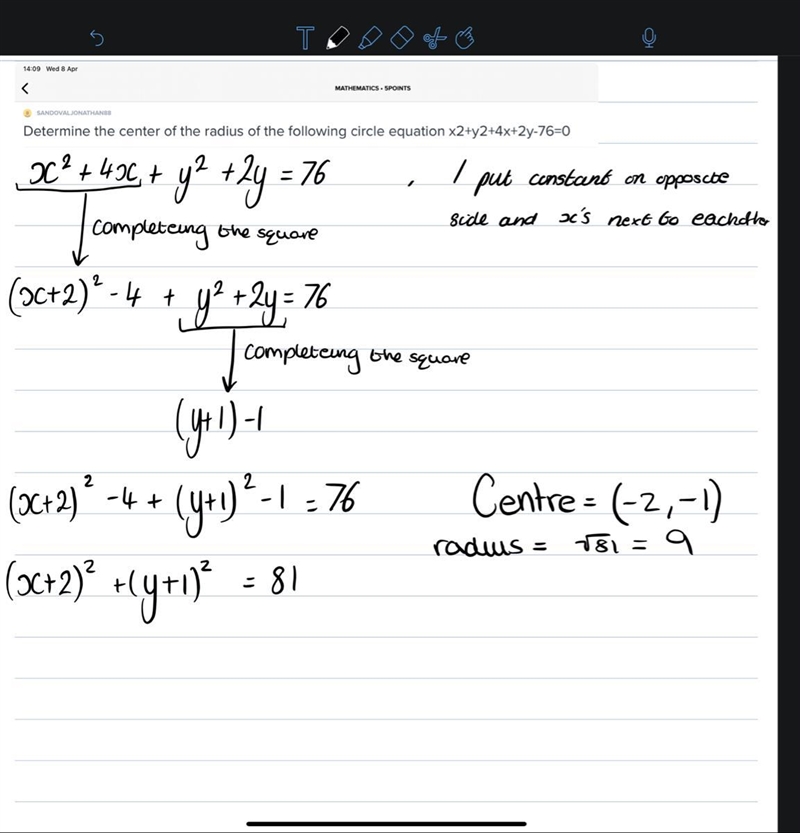 14:09 Wed 8 Apr
MATHEMATICS • 5POINTS
SANDOVALJONATHAN88
Determine the center of the radius of the following circle equation x2+y2+4x+2y-76=0
x² + 4x + y² + 2y = 76 , I put constant on opposite
side and x's next to eachother
completeing the square
(x+2)² - 4 + y² + 2y = 76
completeing the square
(y+1) - 1
(x+2)² - 4 + (y+1)² - 1 = 76
Centre = (-2, -1)
radius = √81 = 9
(x+2)² + (y+1)² = 81